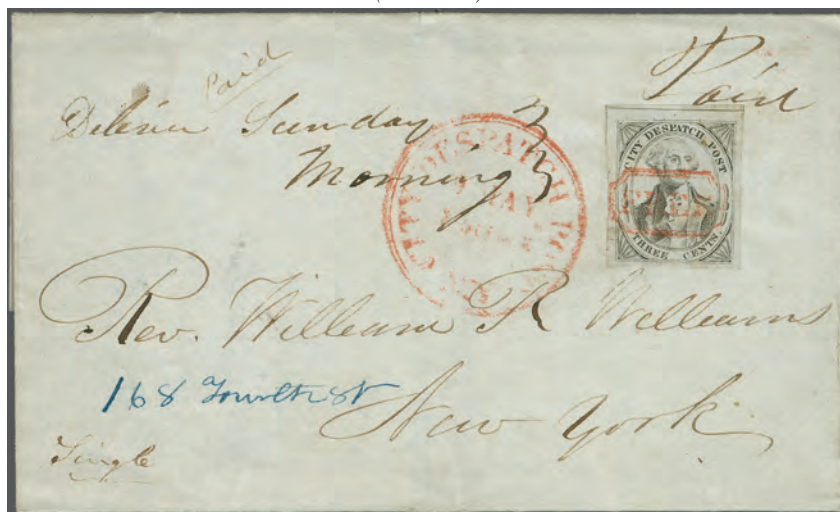 Paid
Paid
Deliver Sunday
Morning
CITY DESPATCH POST
MAY
CITY DESPATCH POST
THREE CENTS.
Rev. William R Williams
168 Fourth St
New York
Single